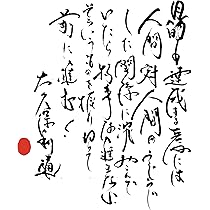 目的を達成する為には
人間対人間のうじうじ
した関係に沈みこんで
いたら物事は進まない
そういうものを振り切って
前に進む
大久保利通